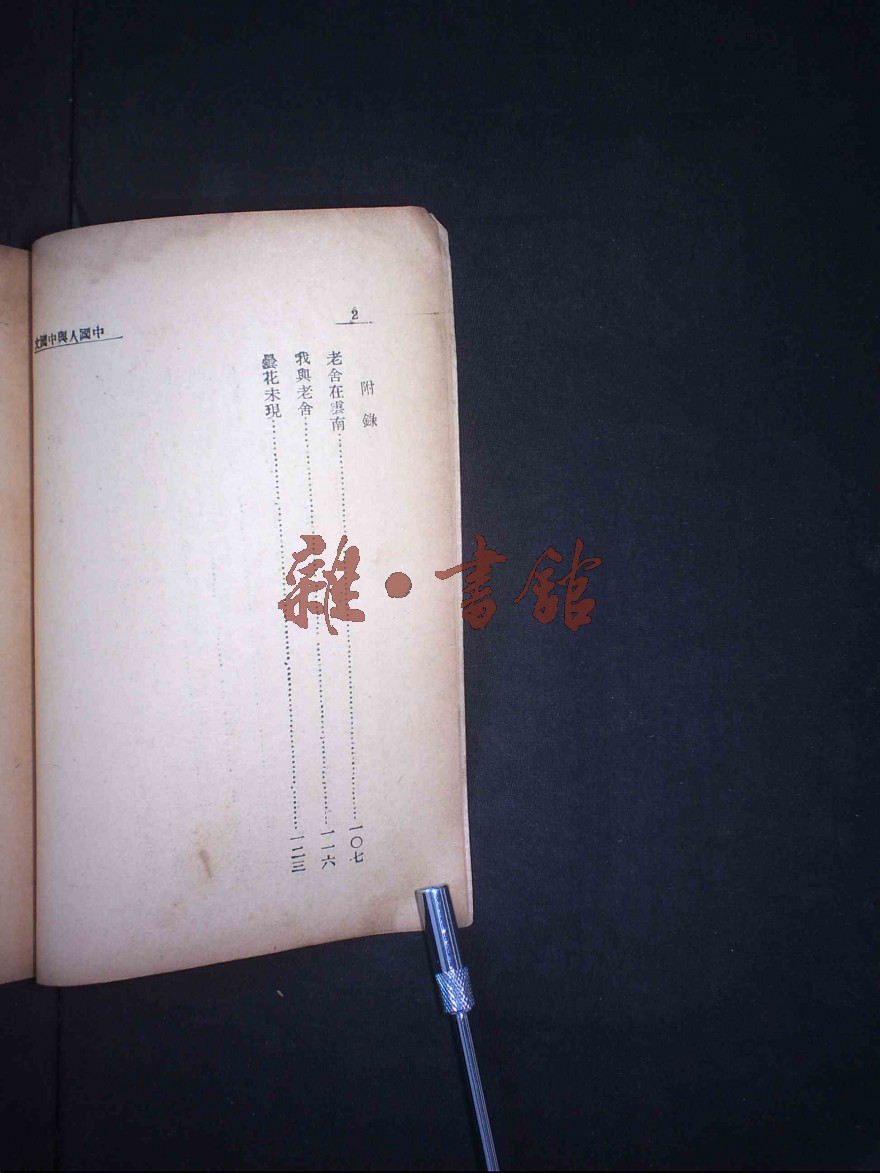 2
中國人與中國文
附錄
老舍在雲南……一〇七
我與老舍……一一六
曇花未現……一二三
雜·書館